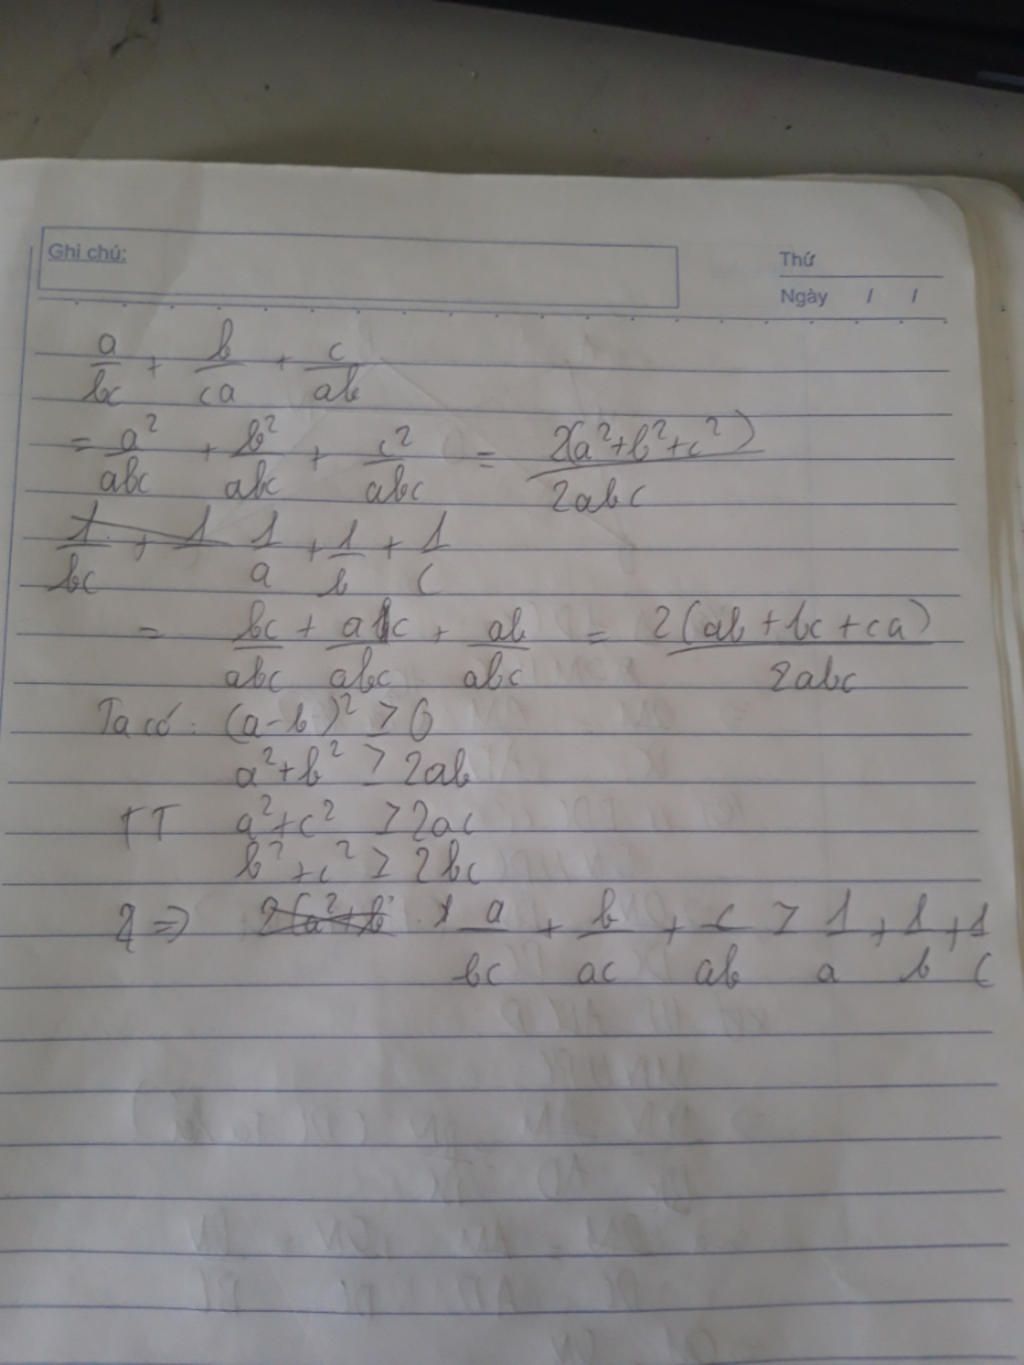 Ghi chú:
Thứ
Ngày / /
a/bc + b/ca + c/ab
= a²/abc + b²/abc + c²/abc = 2(a²+b²+c²)/2abc
1/bc + 1 1/a + 1/b + 1/c
= bc/abc + ac/abc + ab/abc = 2(ab+bc+ca)/2abc
Ta có: (a-b)² ≥ 0
a²+b² ≥ 2ab
TT a²+c² ≥ 2ac
b²+c² ≥ 2bc
⇒ 2(a²+b² a/bc + b/ac + c/ab ≥ 1/a + 1/b + 1/c